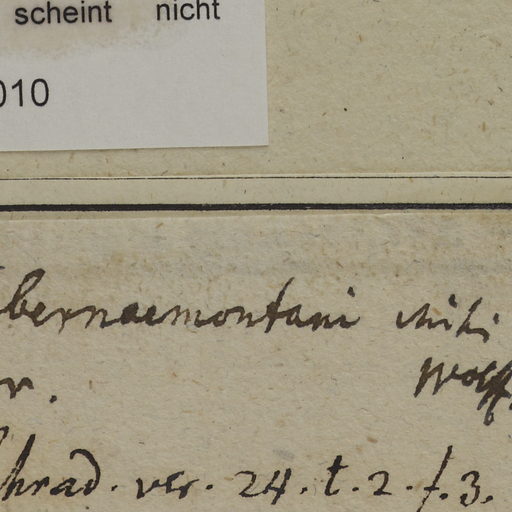 scheint nicht
010
bernaemontani mihi
Wolff.
r.
hrad. ver. 24. t. 2. f. 3.